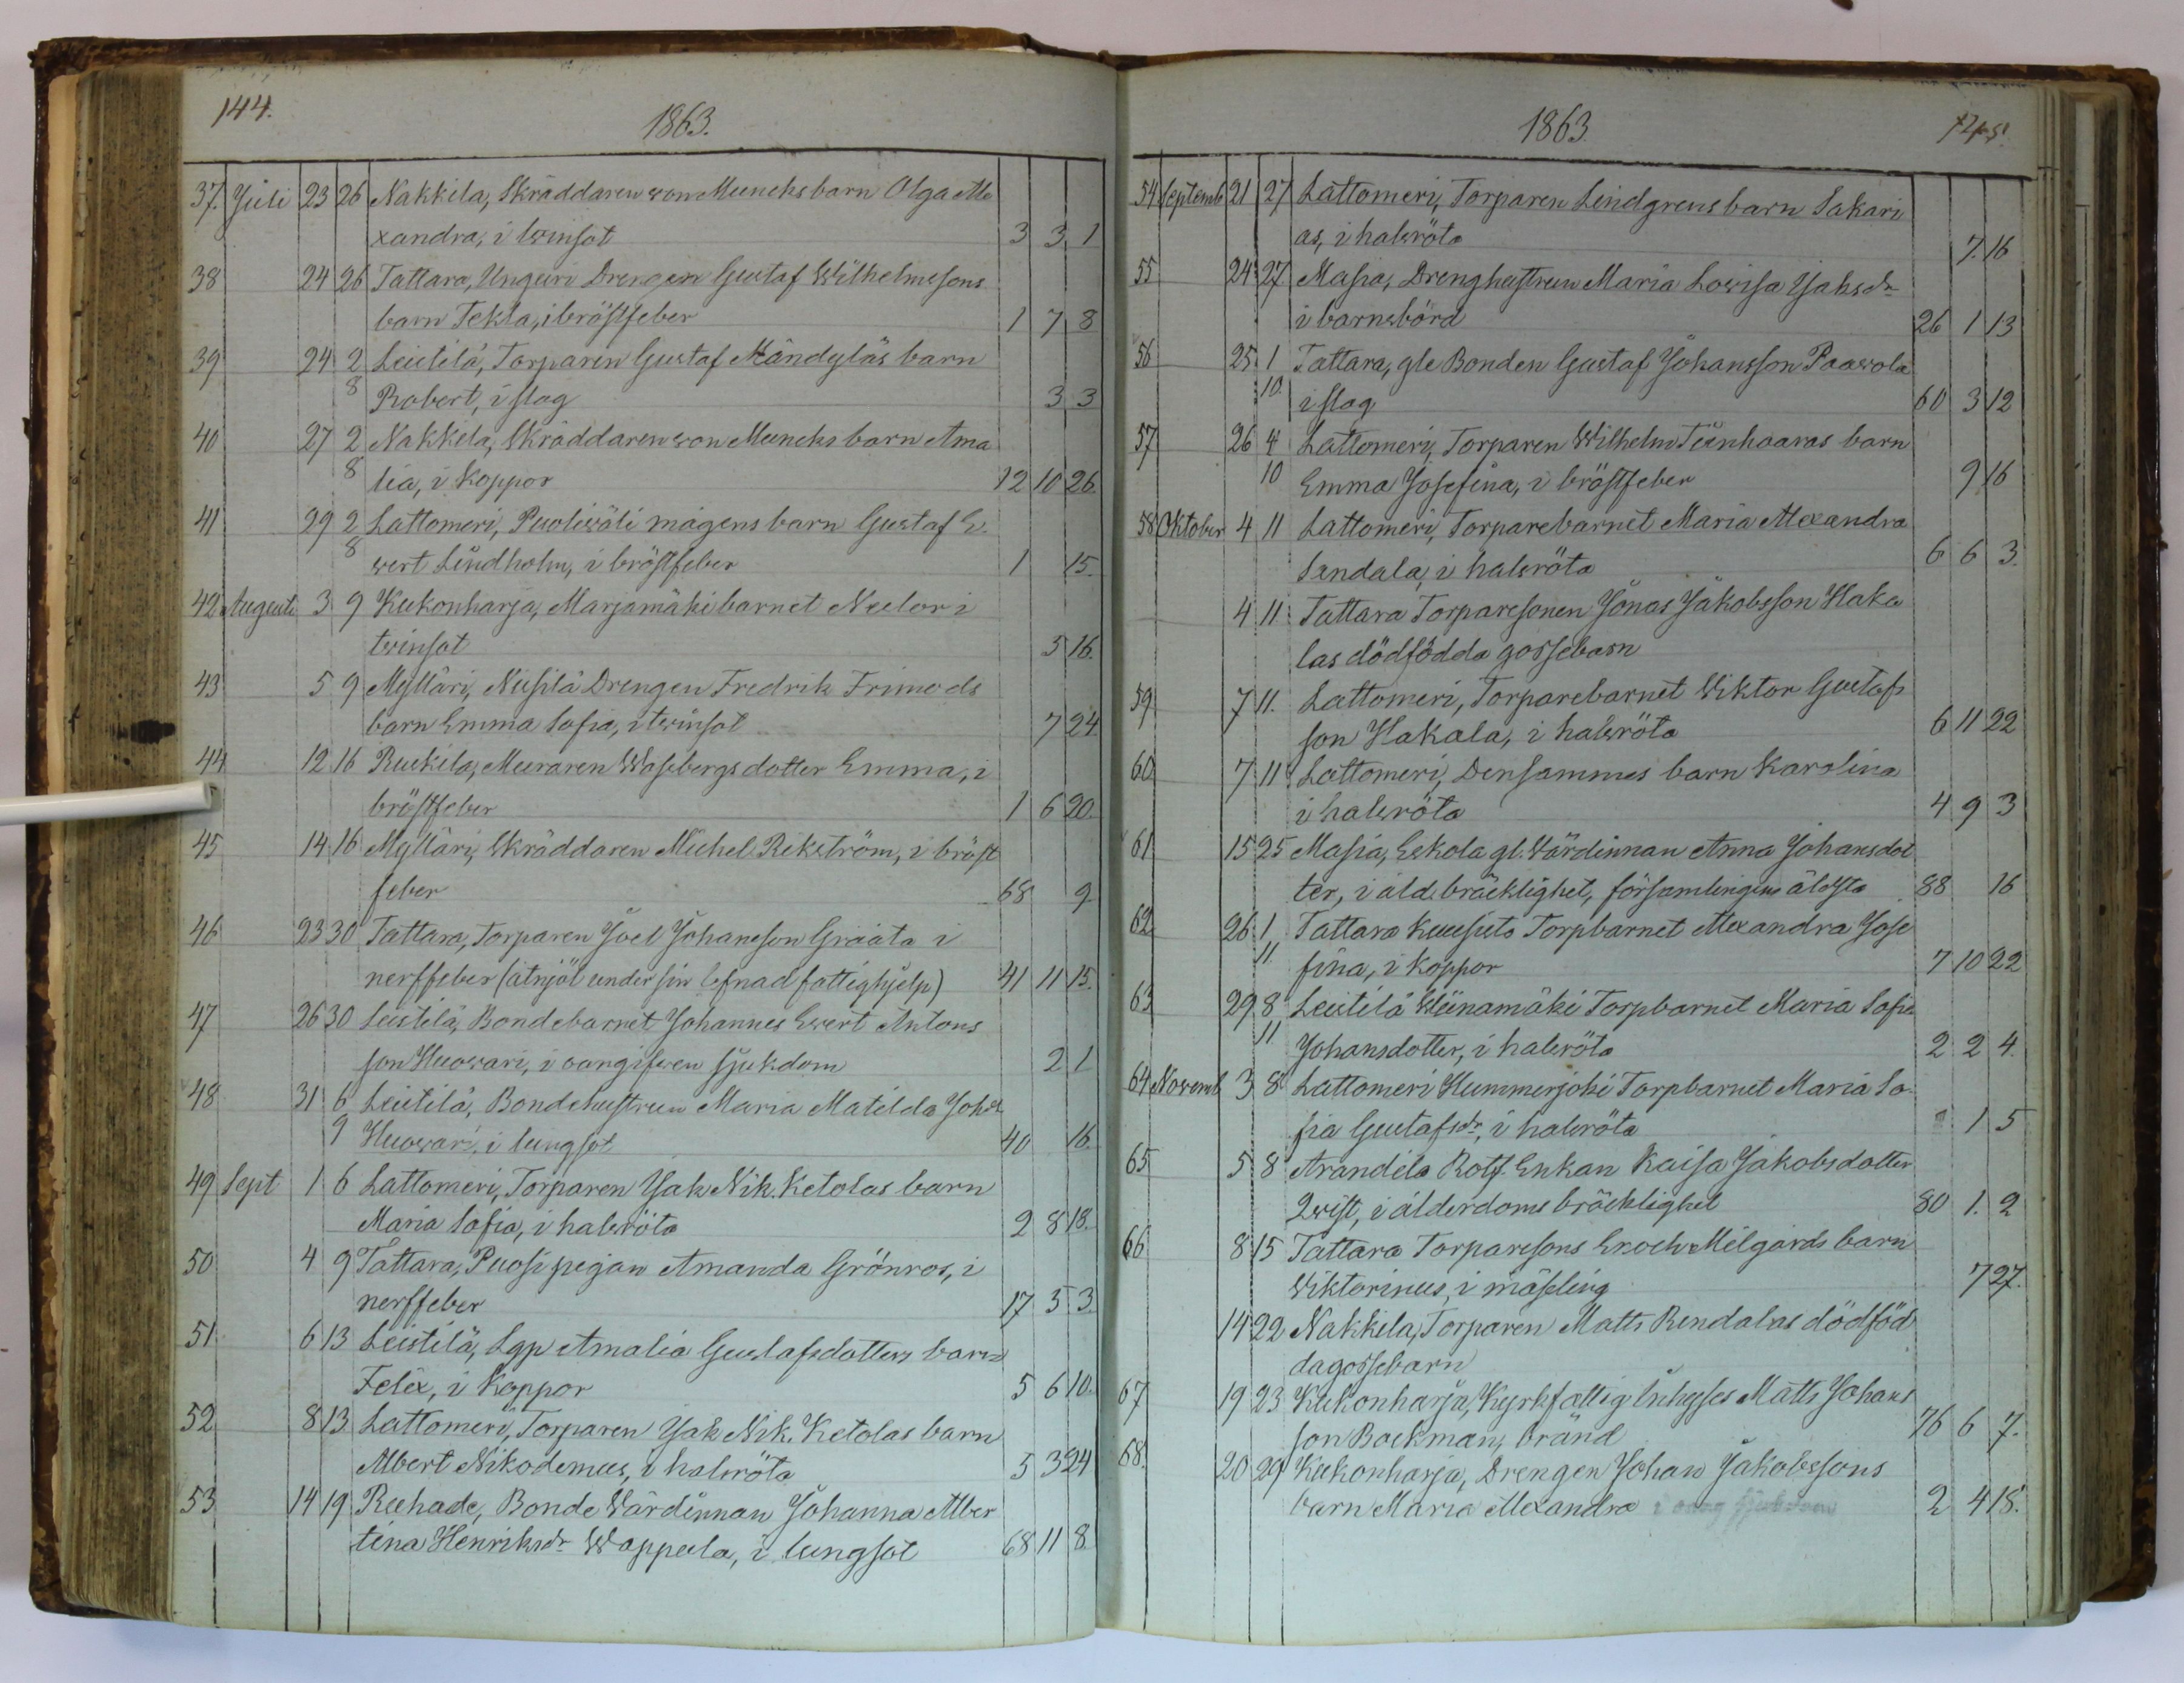 144.
1863.
37. Juli 23 26 Nakkila, Skräddaren von Muncks barn Olga Ale
xandra, i twinsot 3 3 1
38 24 26 Tattara, Unguri Drengen Gustaf Wilhelmssons
barn Tekla, i bröstfeber 1 7 8
39 24 2 Leistilä, Torparen Gustaf Mändyläs barn
8 Robert, i slag 3 3
40 27 2 Nakkila, Skräddaren von Muncks barn Ama
8 lia, i Koppor 12 10 26.
41 29 2 Lattomeri, Puoliwäli mågens barn Gustaf E.
8 wert Lindholm, i bröstfeber 1 15.
42 Augusti 3 9 Kukonharja, Marjamäki barnet i
twinsot 5 16.
43 5 9 Mylläri, Drengen Fredrik Frimods
barn Emma Sofia, i twinsot 7 24
44 12 16 Ruskila, Muraren Wasebergs dotter Emma, i
bröstfeber 1 6 20.
45 14 16 Mylläri, Skräddaren Michel Rikström, i bröst
feber 68 9
46 23 30 Tattara, Torparen Joel Johansson Graata i
nerffeber (åtnjöt under sin lefnad fattighjelp) 41 11 15.
47 26 30 Leistilä, Bondebarnet Johannes Ewert Antons
son Huowari, i oangifwen sjukdom 2 1
48 31 6 Leistilä, Bondehustrun Maria Matilda Johsdr
9 Huowari, i lungsot 40 16.
49 Sept 1 6 Lattomeri, Torparen Jak Nik. Ketolas barn
Maria Sofia, i halsröta 2 8 18.
50 4 9 Tattara, Puosi pigan Amanda Grönros, i
nerffeber 17 5 3.
51 6 13 Leistilä, Lgp Amalia Gustafsdotters barn
Felix, i Koppor 5 6 10.
52 8 13 Lattomeri, Torparen Jak Nik. Ketolas barn
Albert Nikodemus, i halsröta 5 3 24
53 14 19 Ruhade, Bonde Wärdinnan Johanna Alber
tina Henriksdr Wappula, i lungsot 68 11 8.
1863.
145.
54 Septemb 21 27 Lattomeri, Torparen Lindgrens barn Sakari
as, i halsröta 7. 16
55 24 27 Masia, Drenghustrun Maria Lowisa Jaksdr
i barnsbörd 26 1 13
56 25 1 Tattara, gle Bonden Gustaf Johansson Paawola
10. i slag 60 3 12
57 26 4 Lattomeri, Torparen Wilhelm Tiinhaaras barn
10 Emma Josefina, i bröstfeber 9 16
58 Oktober 4 11 Lattomeri, Torparebarnet Maria Alexandra
Sandala, i halsröta 6 6 3.
4 11 Tattara Torparesonen Jonas Jakobsson Haka
las dödfödda gossebarn
59 7 11. Lattomeri, Torparebarnet Wiktor Gustafs
son Hakala, i halsröta 6 11 22
60 7 11 Lattomeri, Densammes barn Karolina
i halsröta 4 9 3
61 15 25 Masia, Eskola gl. Wärdinnan Anna Johansdot
ter, i åld. bräcklighet, församlingens äldsta 88 16
62 26 1 Tattara Kuusisto Torpbarnet Alexandra Jose
11 fina, i Koppor 7 10 22
63 29 8 Leistilä Torpbarnet Maria Sofia
11 Johansdotter, i halsröta 2 2 4.
64 Novemb 3 8 Lattomeri Hummerjoki Torpbarnet Maria So-
fia Gustafsdr, i halsröta 1 5
65 5 8 Arandila Rotf. Enkan Kaisa Jakobsdotter
Qwist, i ålderdoms bräcklighet 80 1. 2
66 8 15 Tattara Torparesons Enoch Milgårds barn
Wiktorinus, i mässling 7 27.
14 22 Nakkila, Torparen Matts Rindalas dödföd
da gossebarn
67 19 23 Kukonharja, Kyrkfattig Inhyses Matts Johans
son Backman, bränd 76 6 7.
68. 20 29 Kukonharja, Drengen Johan Jakobssons
barn Maria Alexandra i oang sjukdom 2 4 18.